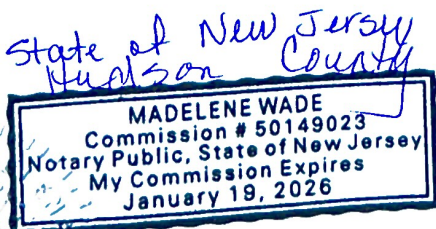 State of New Jersey
Hudson County
MADELENE WADE
Commission # 50149023
Notary Public, State of New Jersey
My Commission Expires
January 19, 2026